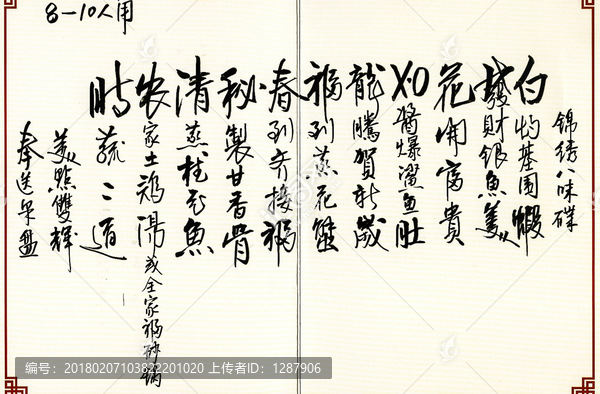 8-10人用
锦绣八味碟
白灼基围蝦
發財银魚羹
花開富貴
X.O醬爆鲨魚肚
龍騰賀新歲
福到蒸花蟹
春到齐接福
秘製甘香骨
清蒸桂花魚
农家土鸡湯或全家福砂锅
時蔬二道
美點雙輝
奉送果盘
编号：20180207103822201020 上传者ID：1287906